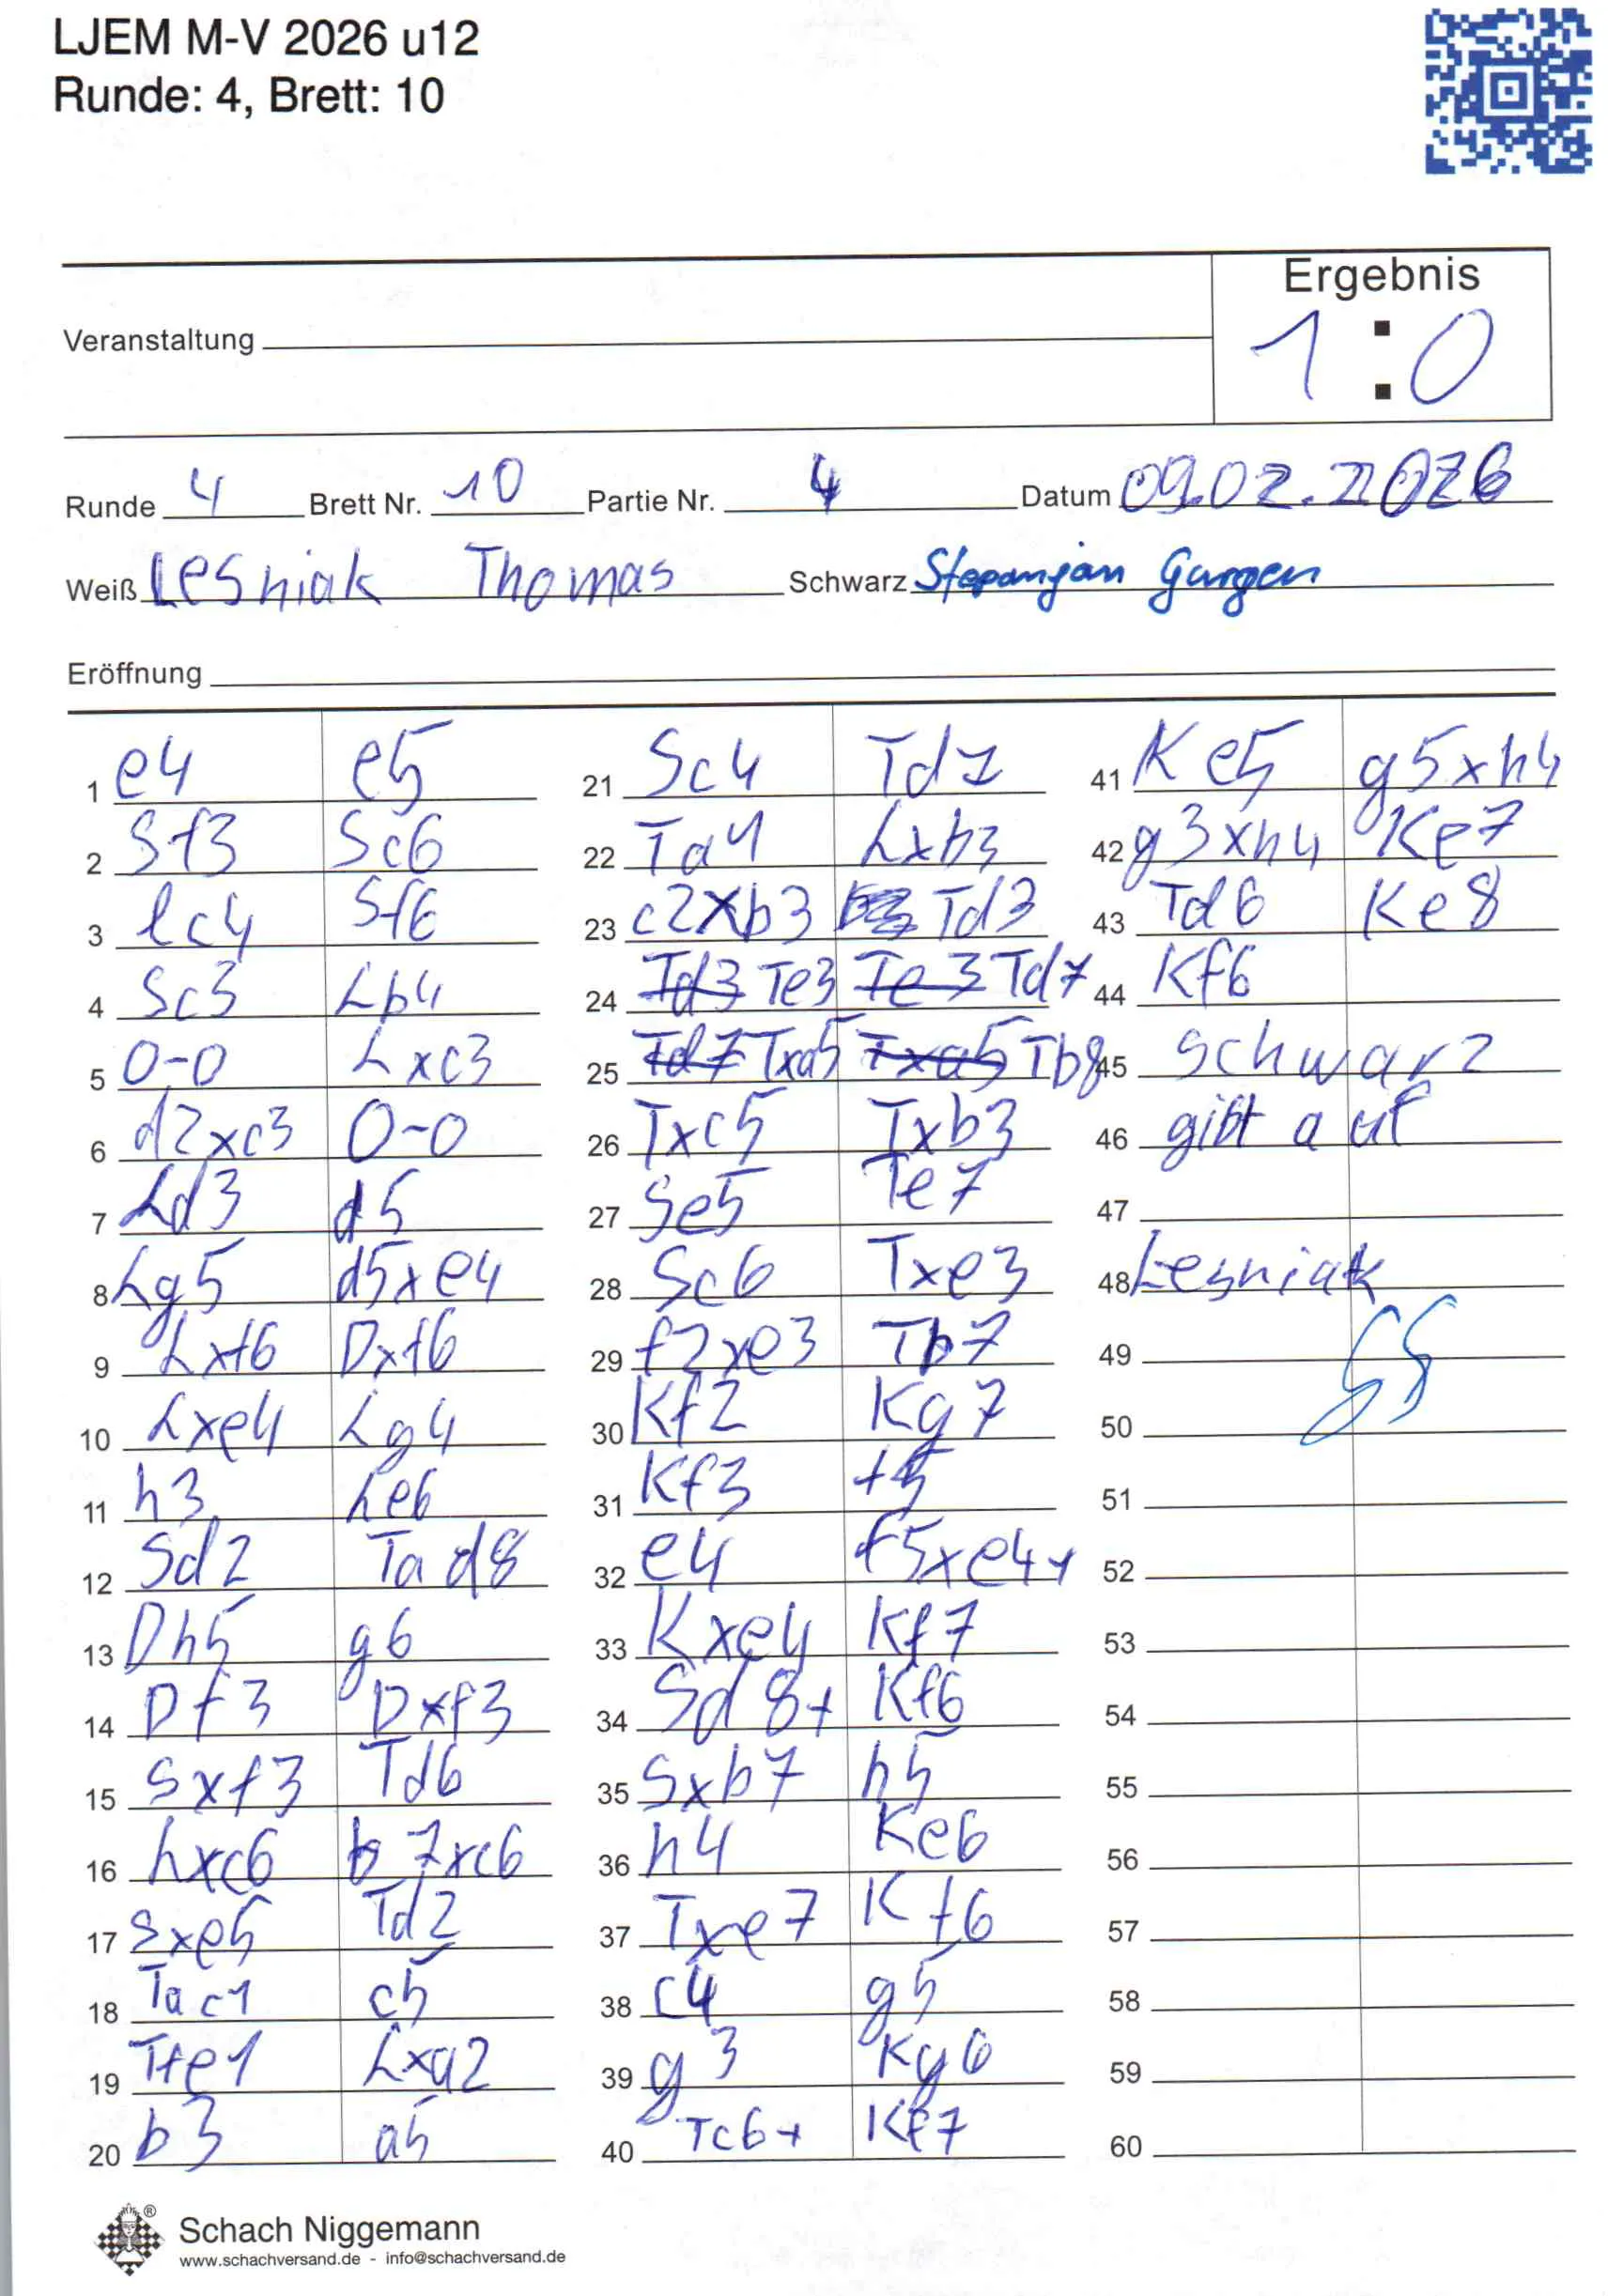 LJEM M-V 2026 u12
Runde: 4, Brett: 10
Ergebnis
1 : 0
Veranstaltung
Runde 4 Brett Nr. 10 Partie Nr. 4 Datum 09.02.2026
Weiß Lesniak Thomas Schwarz Stepanjan Gurgen
Eröffnung
1 e4 e5
2 Sf3 Sc6
3 Lc4 Sf6
4 Sc3 Lb4
5 0-0 Lxc3
6 d2xc3 0-0
7 Ld3 d5
8 Lg5 d5xe4
9 Lxf6 Dxf6
10 Lxe4 Lg4
11 h3 Le6
12 Sd2 Tad8
13 Dh5 g6
14 Df3 Dxf3
15 Sxf3 Td6
16 Lxc6 b7xc6
17 Sxe5 Td2
18 Tac1 c5
19 Tfe1 Lxa2
20 b3 a5
21 Sc4 Td7
22 Ta1 Lxb3
23 c2xb3 Td3
24 Td3 Te3 Te3 Td7
25 Td7 Txa5 Txa5 Tb8
26 Txc5 Txb3
27 Se5 Te7
28 Sc6 Txe3
29 f2xe3 Tb7
30 Kf2 Kg7
31 Kf3 f5
32 e4 f5xe4+
33 Kxe4 Kf7
34 Sd8+ Kf6
35 Sxb7 h5
36 h4 Ke6
37 Txe7 Kf6
38 c4 g5
39 g3 Kg6
40 Tc6+ Kf7
41 Ke5 g5xh4
42 g3xh4 Ke7
43 Td6 Ke8
44 Kf6
45 Schwarz
46 gibt auf
47
48 Lesniak
49
50
51
52
53
54
55
56
57
58
59
60
Schach Niggemann
www.schachversand.de - info@schachversand.de